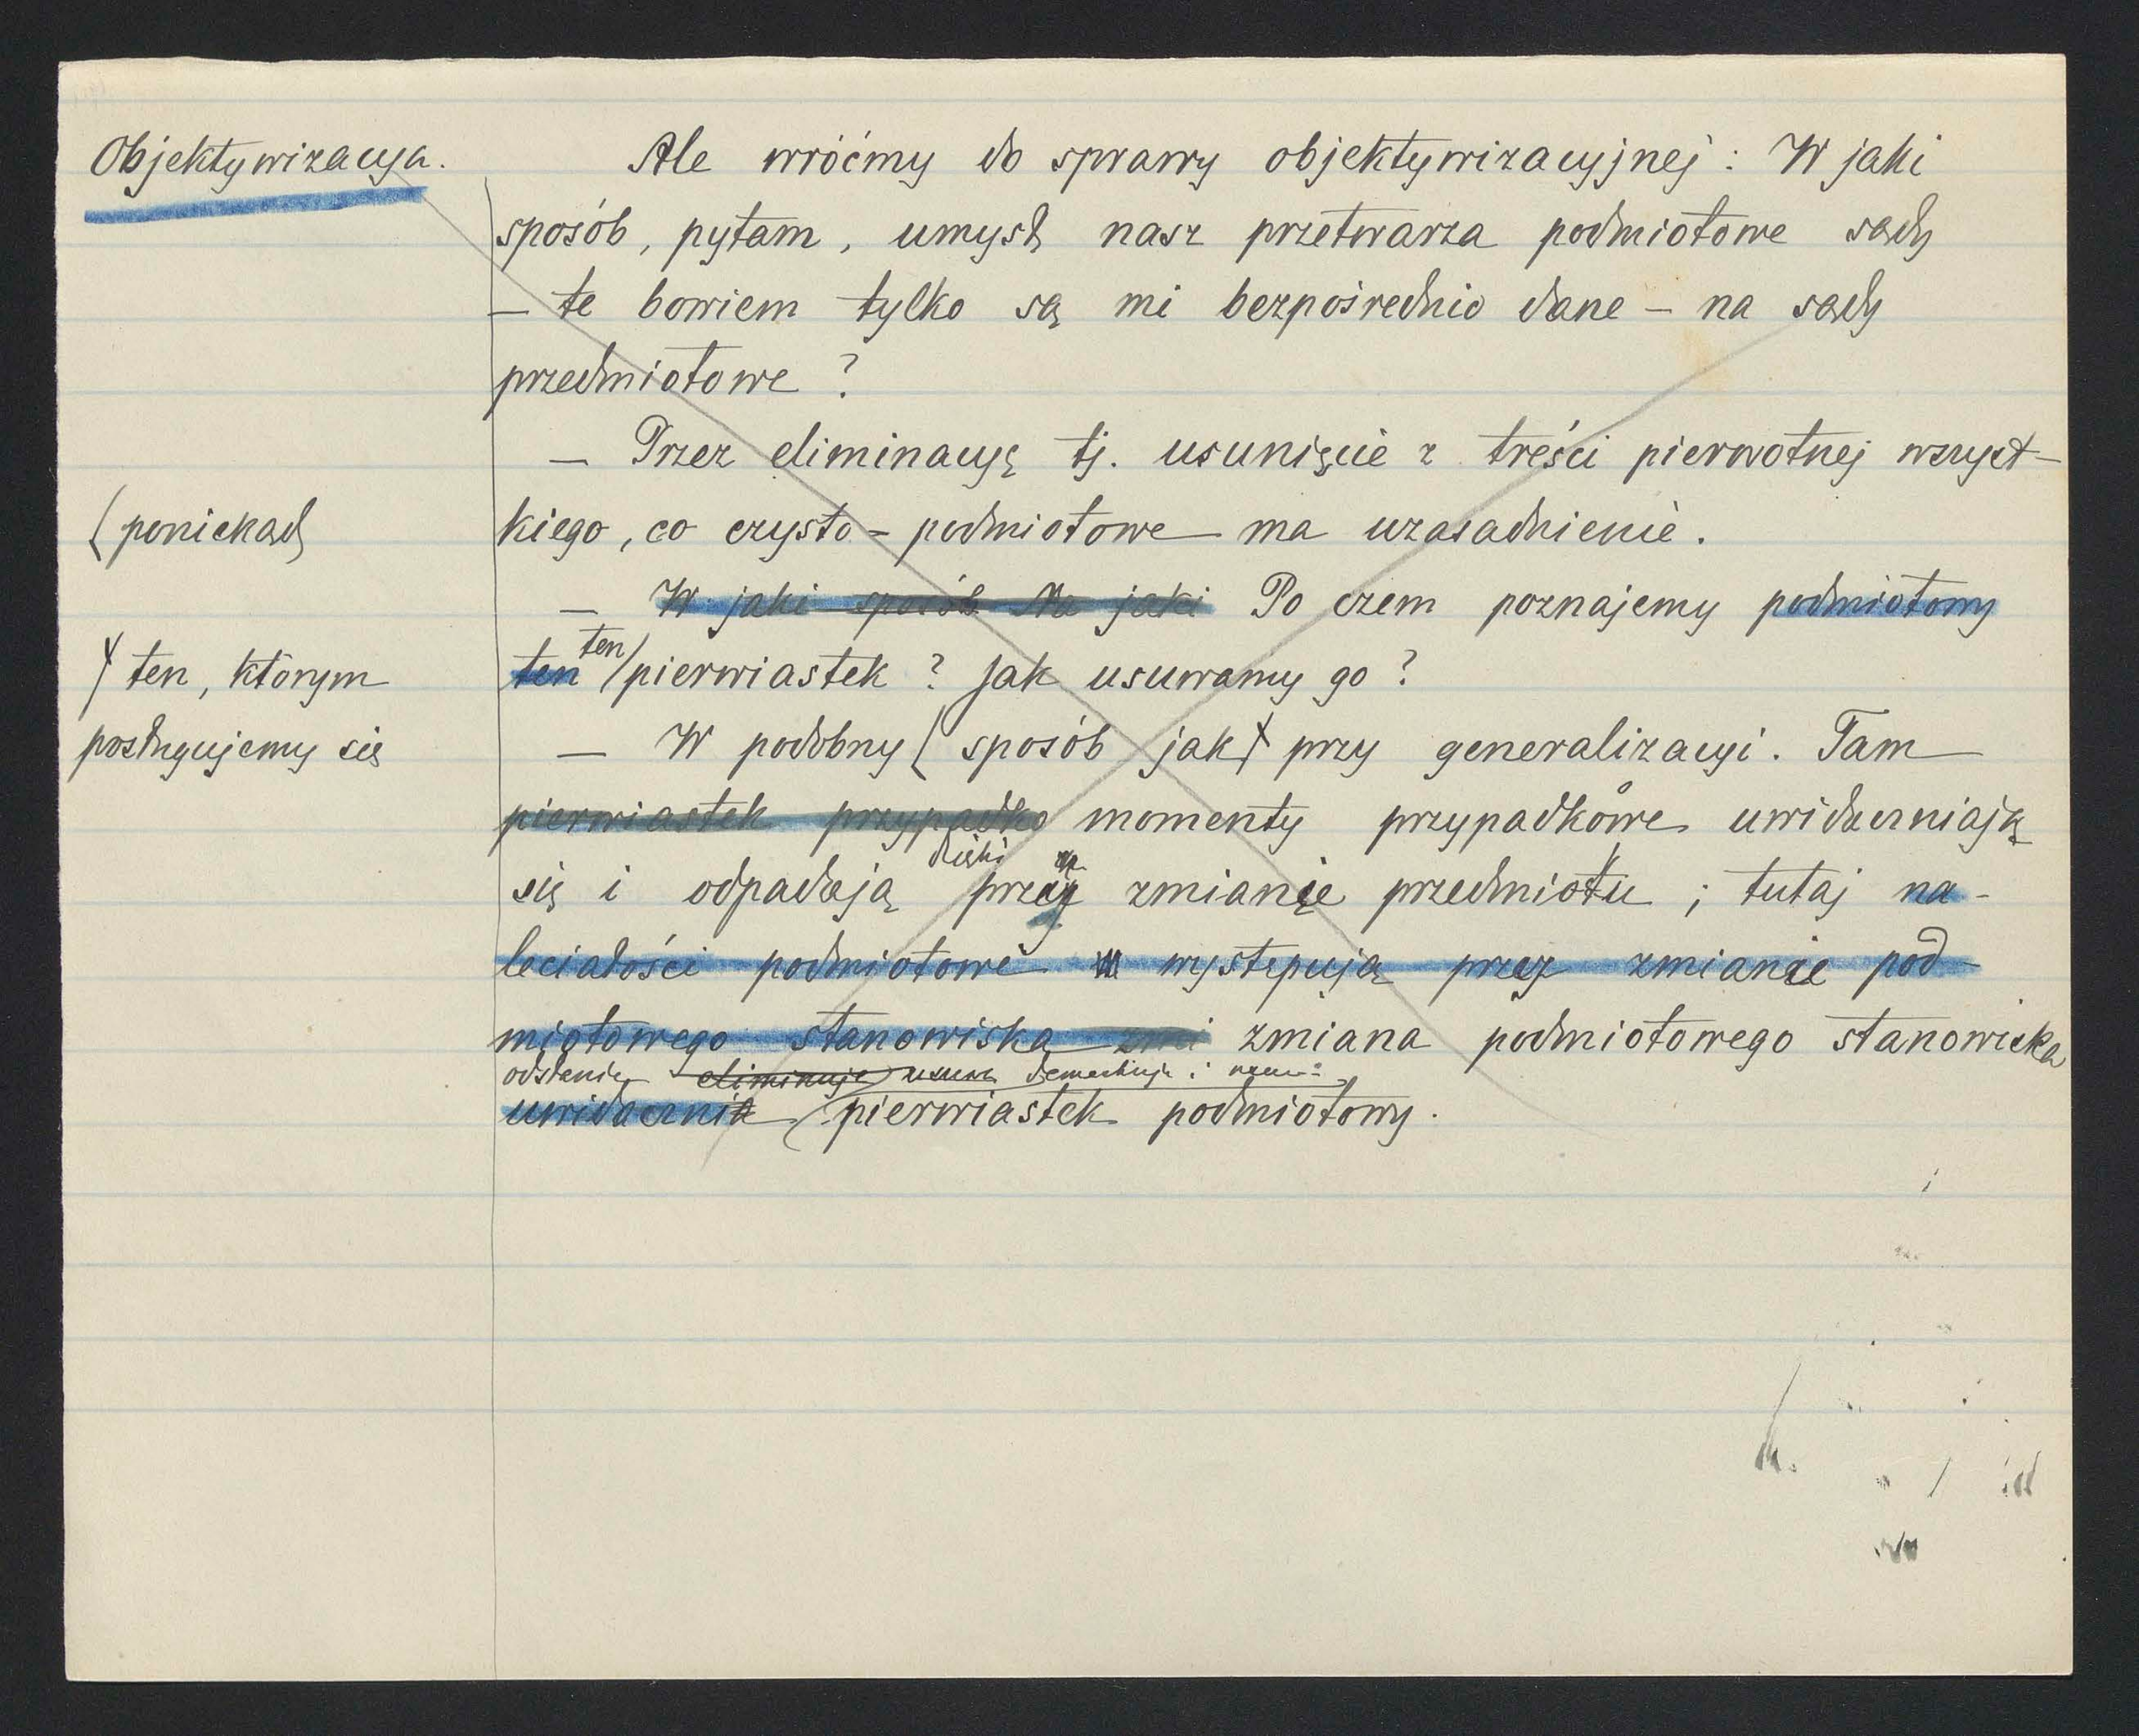 Objektywizacya.
Ale wróćmy do sprawy objektywizacyjnej : W jaki
sposób, pytam, umysł nasz przetwarza podmiotowe sądy
– te bowiem tylko są mi bezpośrednio dane – na sądy
przedmiotowe ?
– Przez eliminacyę tj. usunięcie z treści pierwotnej wszyst-
(poniekąd
kiego, co czysto-podmiotowe ma uzasadnienie.
– W jaki sposób Na jaki Po czem poznajemy podmiotowy
ten
ten pierwiastek ? Jak usuwamy go ?
ten, którym
posługujemy się
– W podobny ( sposób jak przy generalizacyi. Tam
pierwiastek przypadko momenty przypadkowe uwidaczniają
dzięki
się i odpadają przy zmianie przedmiotu ; tutaj na-
leciałości podmiotowe występują przez zmianie pod-
miotowego stanowiska zmi zmiana podmiotowego stanowiska
odsłania eliminuje usuwa
uwidacznia (pierwiastek podmiotowy.